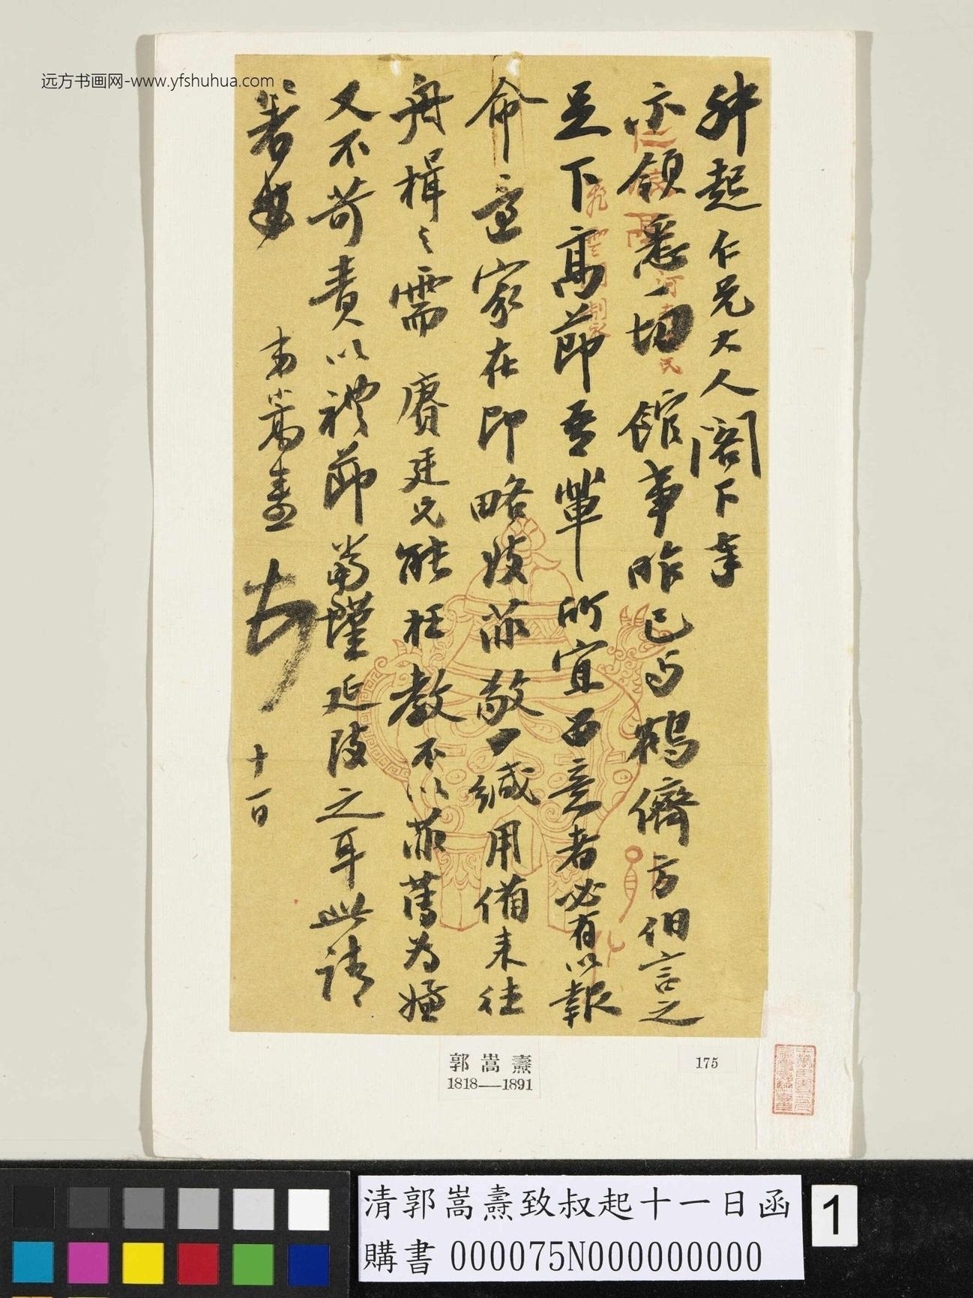 远方书画网-www.yfshuhua.com
叔起仁兄大人阁下奉
示领悉一切館事昨已与鶴儕方伯言之
足下高節吾輩所宜留意者必有以報
命啓家在即略致菲敬一緘用備来往
舟楫之需賡廷兄能枉教不以菲薄為嫌
又不苛責以禮節當謹延跂之耳此請
著安
弟嵩燾
十一日
郭嵩燾
1818——1891
175
清郭嵩燾致叔起十一日函
購書 000075N000000000
1